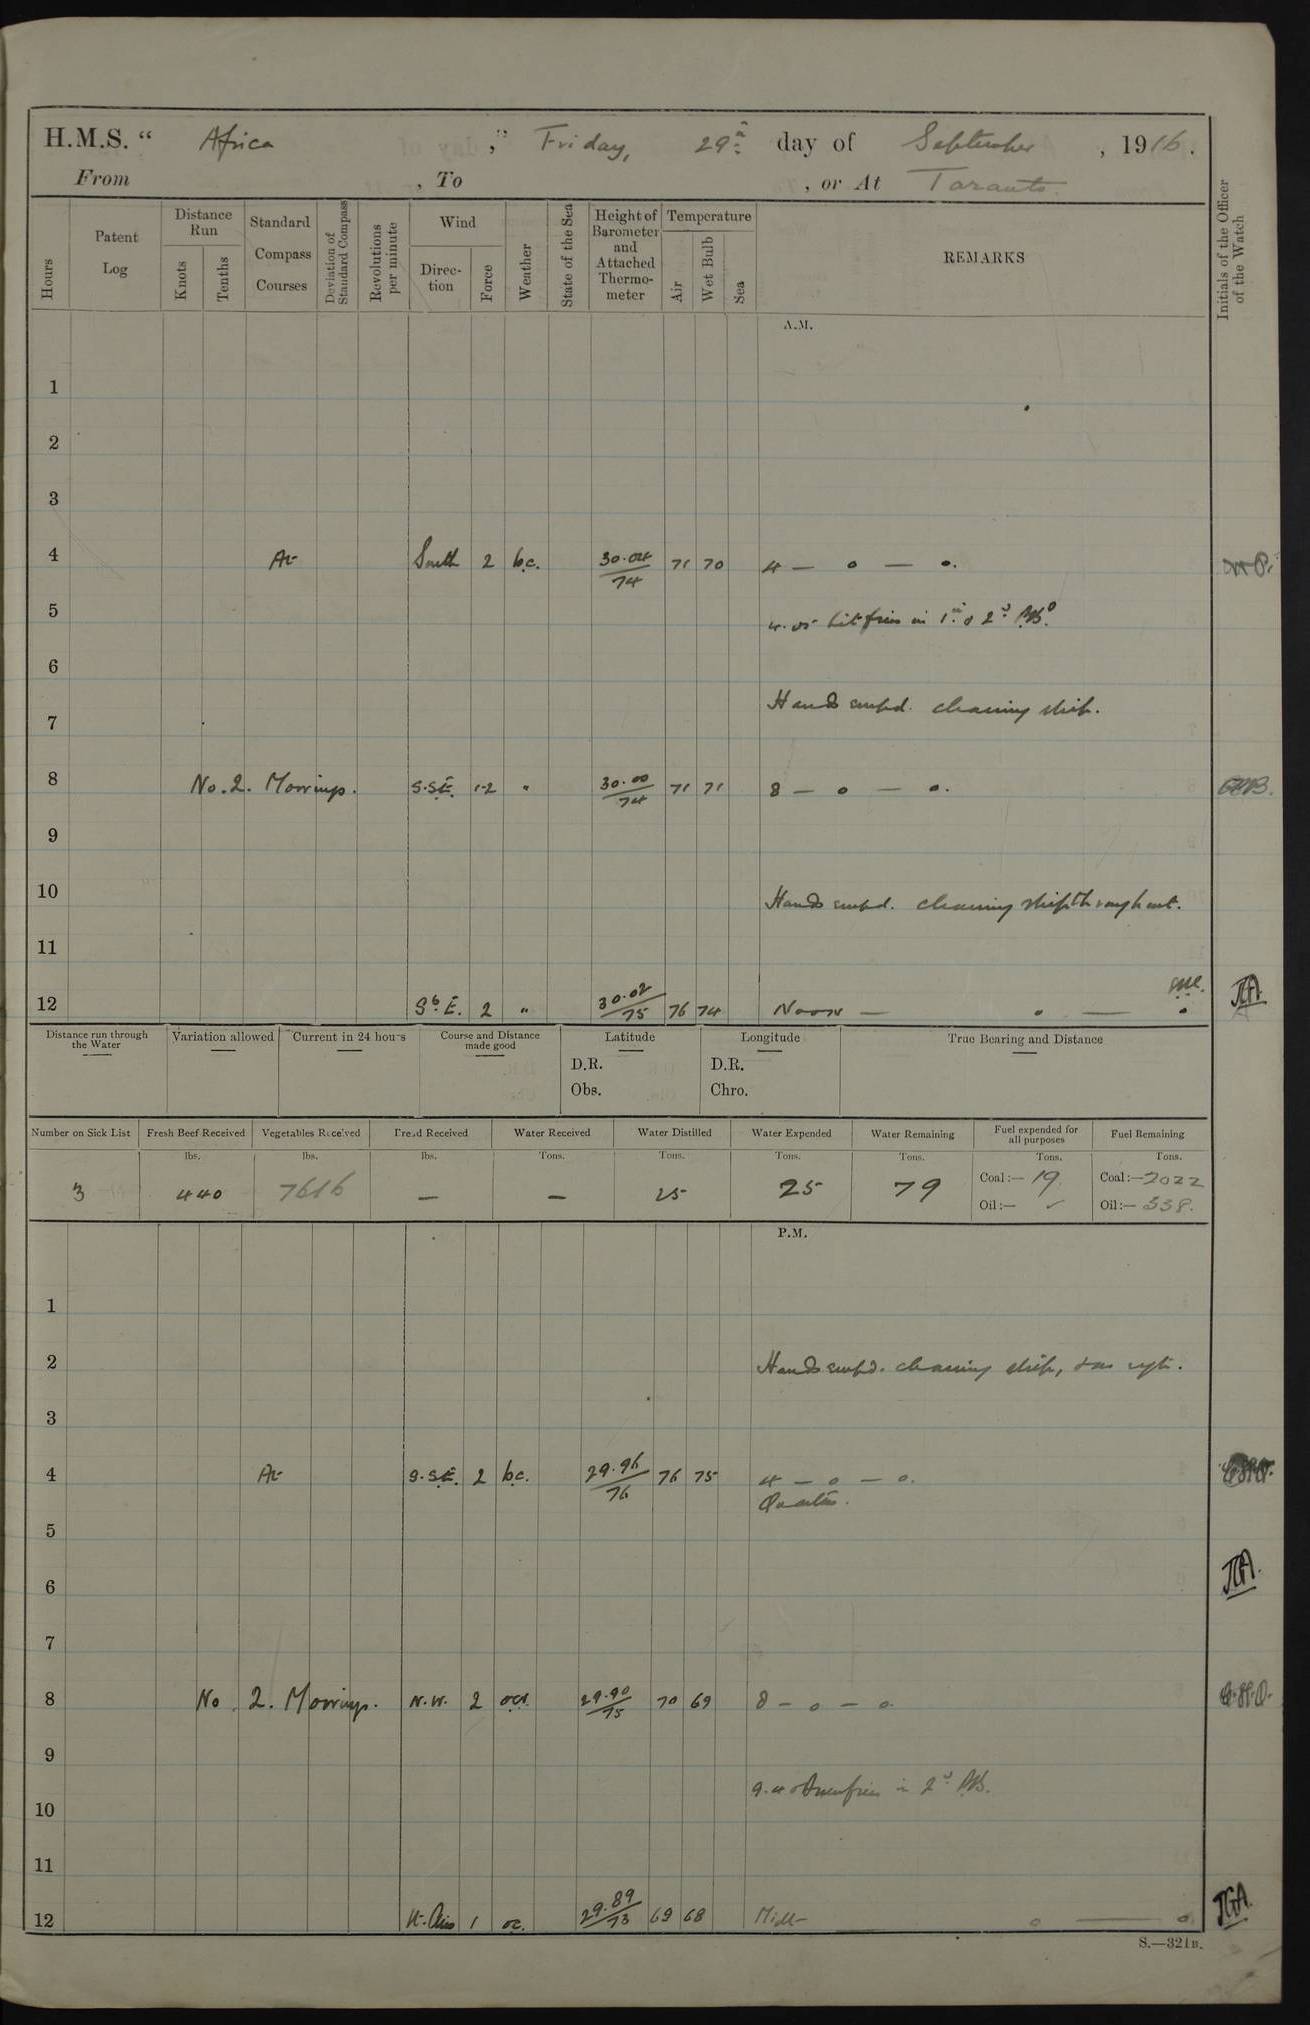 H.M.S. “ Africa ,” Friday, 29th day of September , 1916.
From , To , or At Taranto.
Hours
Patent Log
Distance Run
Knots
Tenths
Standard Compass Courses
Deviation of Standard Compass
Revolutions per minute
Wind
Direc-tion
Force
Weather
State of the Sea
Height of Barometer and Attached Thermo-meter
Temperature
Air
Wet Bulb
Sea
REMARKS
Initials of the Officer of the Watch
A.M.
1
2
3
4 At South 2 b.c. 30.04/74 71 70 4 — o — o.
5 in 1st & 2nd
6
Hands empd. cleaning ship.
7
8 No. 2. Moorings. S.SE. 1-2 " 30.00/74 71 71 8 — o — o.
9
10 Hands empd. cleaning ship throughout.
11
12 SbE. 2 " 30.02/75 76 74 Noon — o — o JGA
Distance run through the Water
Variation allowed
Current in 24 hours
Course and Distance made good
Latitude
D.R.
Obs.
Longitude
D.R.
Chro.
True Bearing and Distance
Number on Sick List Fresh Beef Received Vegetables Received Bread Received Water Received Water Distilled Water Expended Water Remaining Fuel expended for all purposes Fuel Remaining
lbs. lbs. lbs. Tons. Tons. Tons. Tons. Tons. Tons.
3 440 7616 — — 25 25 79 Coal:— 19 Coal:— 2022
Oil:— ✓ Oil:— 338.
P.M.
1
2 Hands empd. cleaning ship,
3
4 At S.SE. 2 bc. 29.96/76 76 75 4 — o — o.
Quarters.
5
6 JGA.
7
8 No. 2. Moorings. N.W. 2 29.90/75 70 69 8 — o — o
9
9.40 in 2nd
10
11
12 Lt. Airs 1 oc. 29.89/73 69 68 Midt o — o JGA
S.—321B.